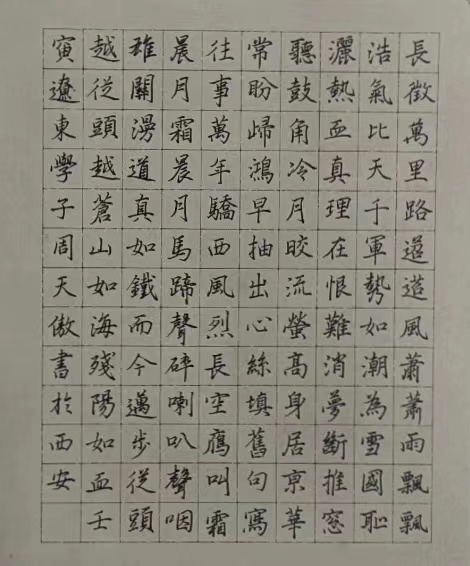 長徵萬里路遙遙風蕭蕭雨飄飄
浩氣比天千軍勢如潮為雪國恥
灑熱血真理在恨難消夢斷推窓
聽鼓角冷月皎流螢高身居京華
常盼歸鴻早抽出心絲填舊句寫
往事萬年驕西風烈長空鴈叫霜
晨月霜晨月馬蹄聲碎喇叭聲咽
雄關漫道真如鐵而今邁步從頭
越從頭越蒼山如海殘陽如血壬
寅遼東學子周天傲書於西安